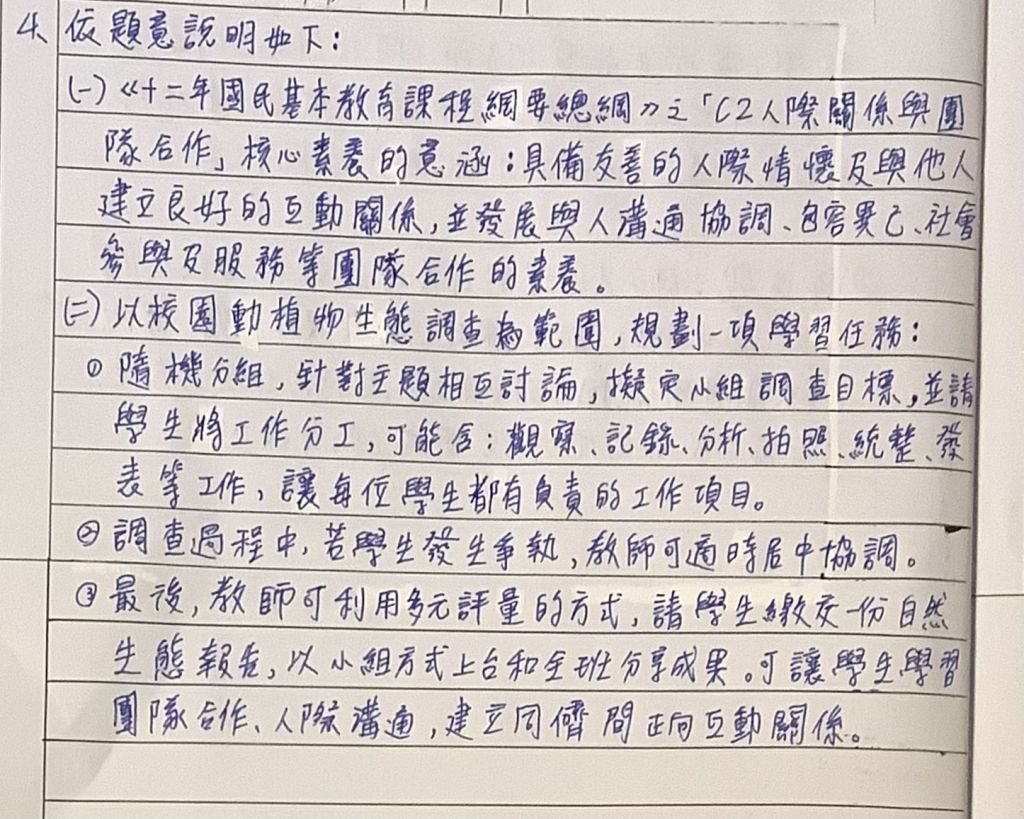 4、依題意說明如下：
(一)《十二年國民基本教育課程綱要總綱》之「C2人際關係與團
隊合作」核心素養的意涵：具備友善的人際情懷及與他人
建立良好的互動關係，並發展與人溝通協調、包容異己、社會
參與及服務等團隊合作的素養。
(二)以校園動植物生態調查為範圍，規劃一項學習任務：
①隨機分組，針對主題相互討論，擬定小組調查目標，並請
學生將工作分工，可能含：觀察、記錄、分析、拍照、統整、發
表等工作，讓每位學生都有負責的工作項目。
②調查過程中，若學生發生爭執，教師可適時居中協調。
③最後，教師可利用多元評量的方式，請學生繳交一份自然
生態報告，以小組方式上台和全班分享成果。可讓學生學習
團隊合作、人際溝通，建立同儕間正向互動關係。